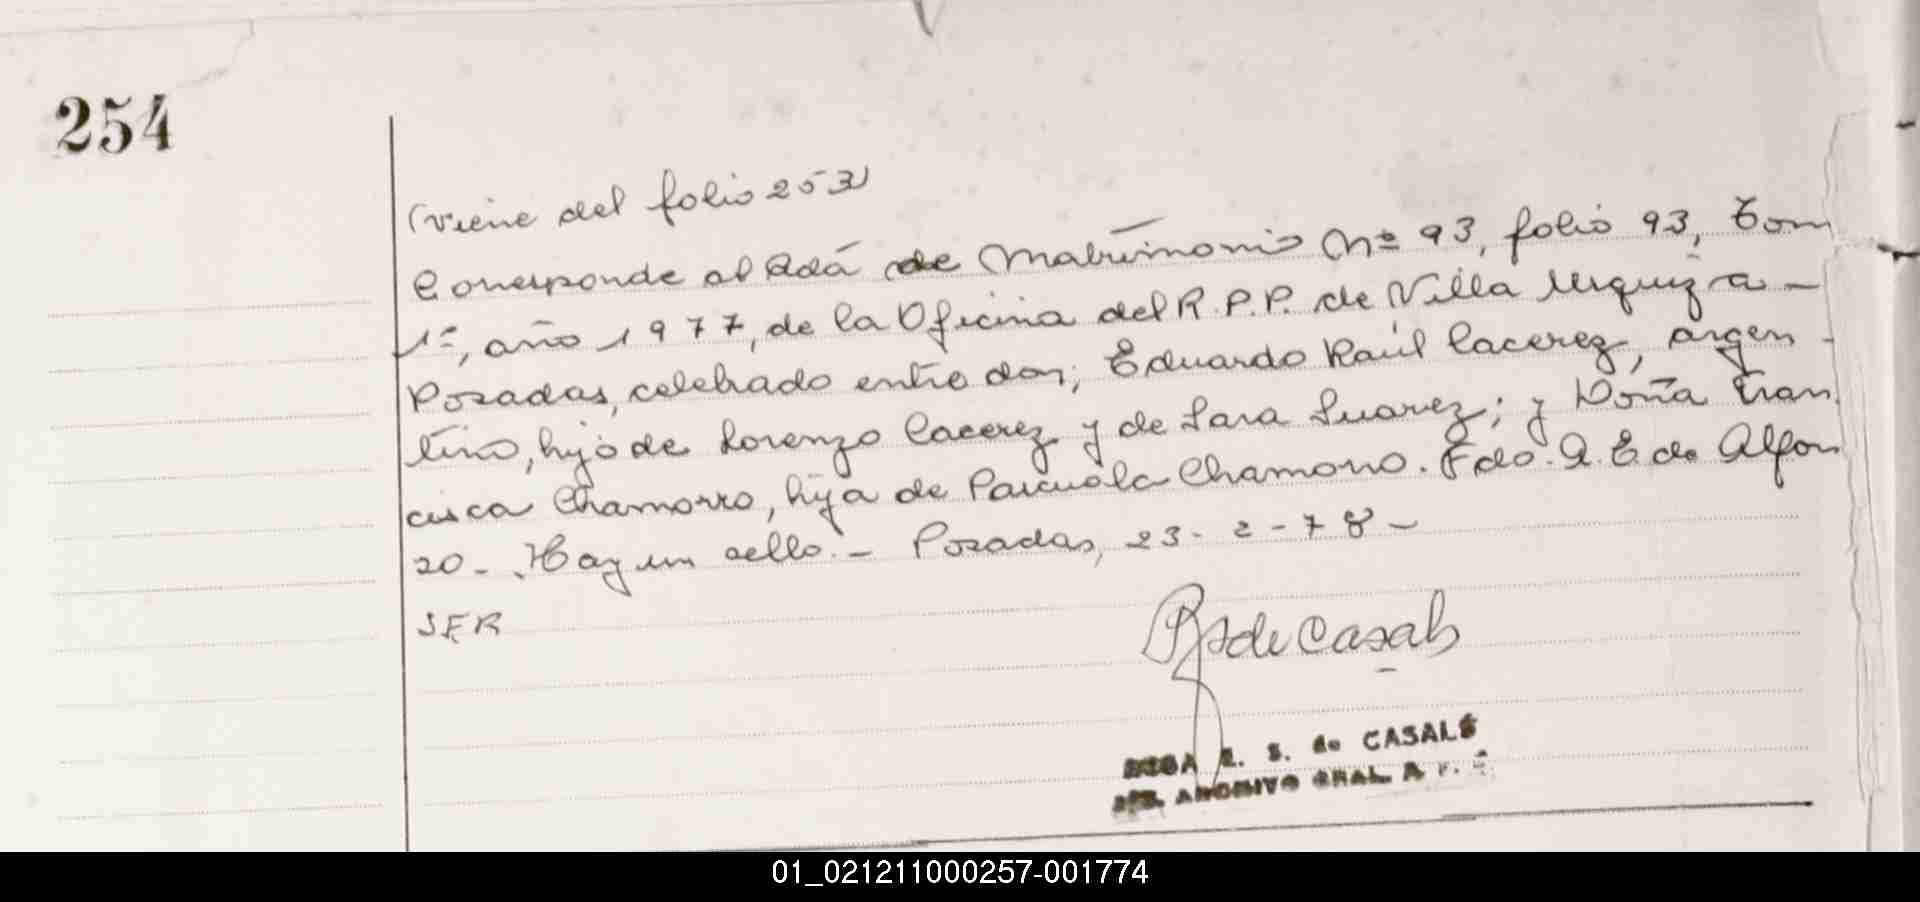 254
(viene del folio 253)
Corresponde al Acta de Matrimonio Nº 93, folio 93, Tom
1º, año 1977, de la Oficina del R.P.P. de Villa Urquiza -
Posadas, celebrado entre don; Eduardo Raúl Cacerez, argen -
tino, hijo de Lorenzo Cacerez y de Sara Suarez; y Doña Fran
cisca Chamorro, hija de Pascuala Chamorro. Fdo. A. E. de Alfon
zo - Hay un sello. - Posadas, 23 - 2 - 78 -
SER
de Casals
E. S. de CASALS
ARCHIVO GRAL. R. P.
01_021211000257-001774